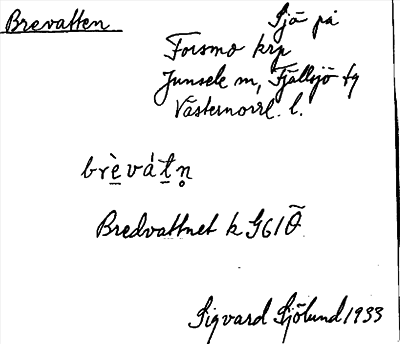 Brevatten Sjö på
Forsmo krp
Junsele sn, Fjällsjö tg
Västernorrl. l.
brèvátn̥
Bredvattnet k G61Õ
Sigvard Sjölund 1933